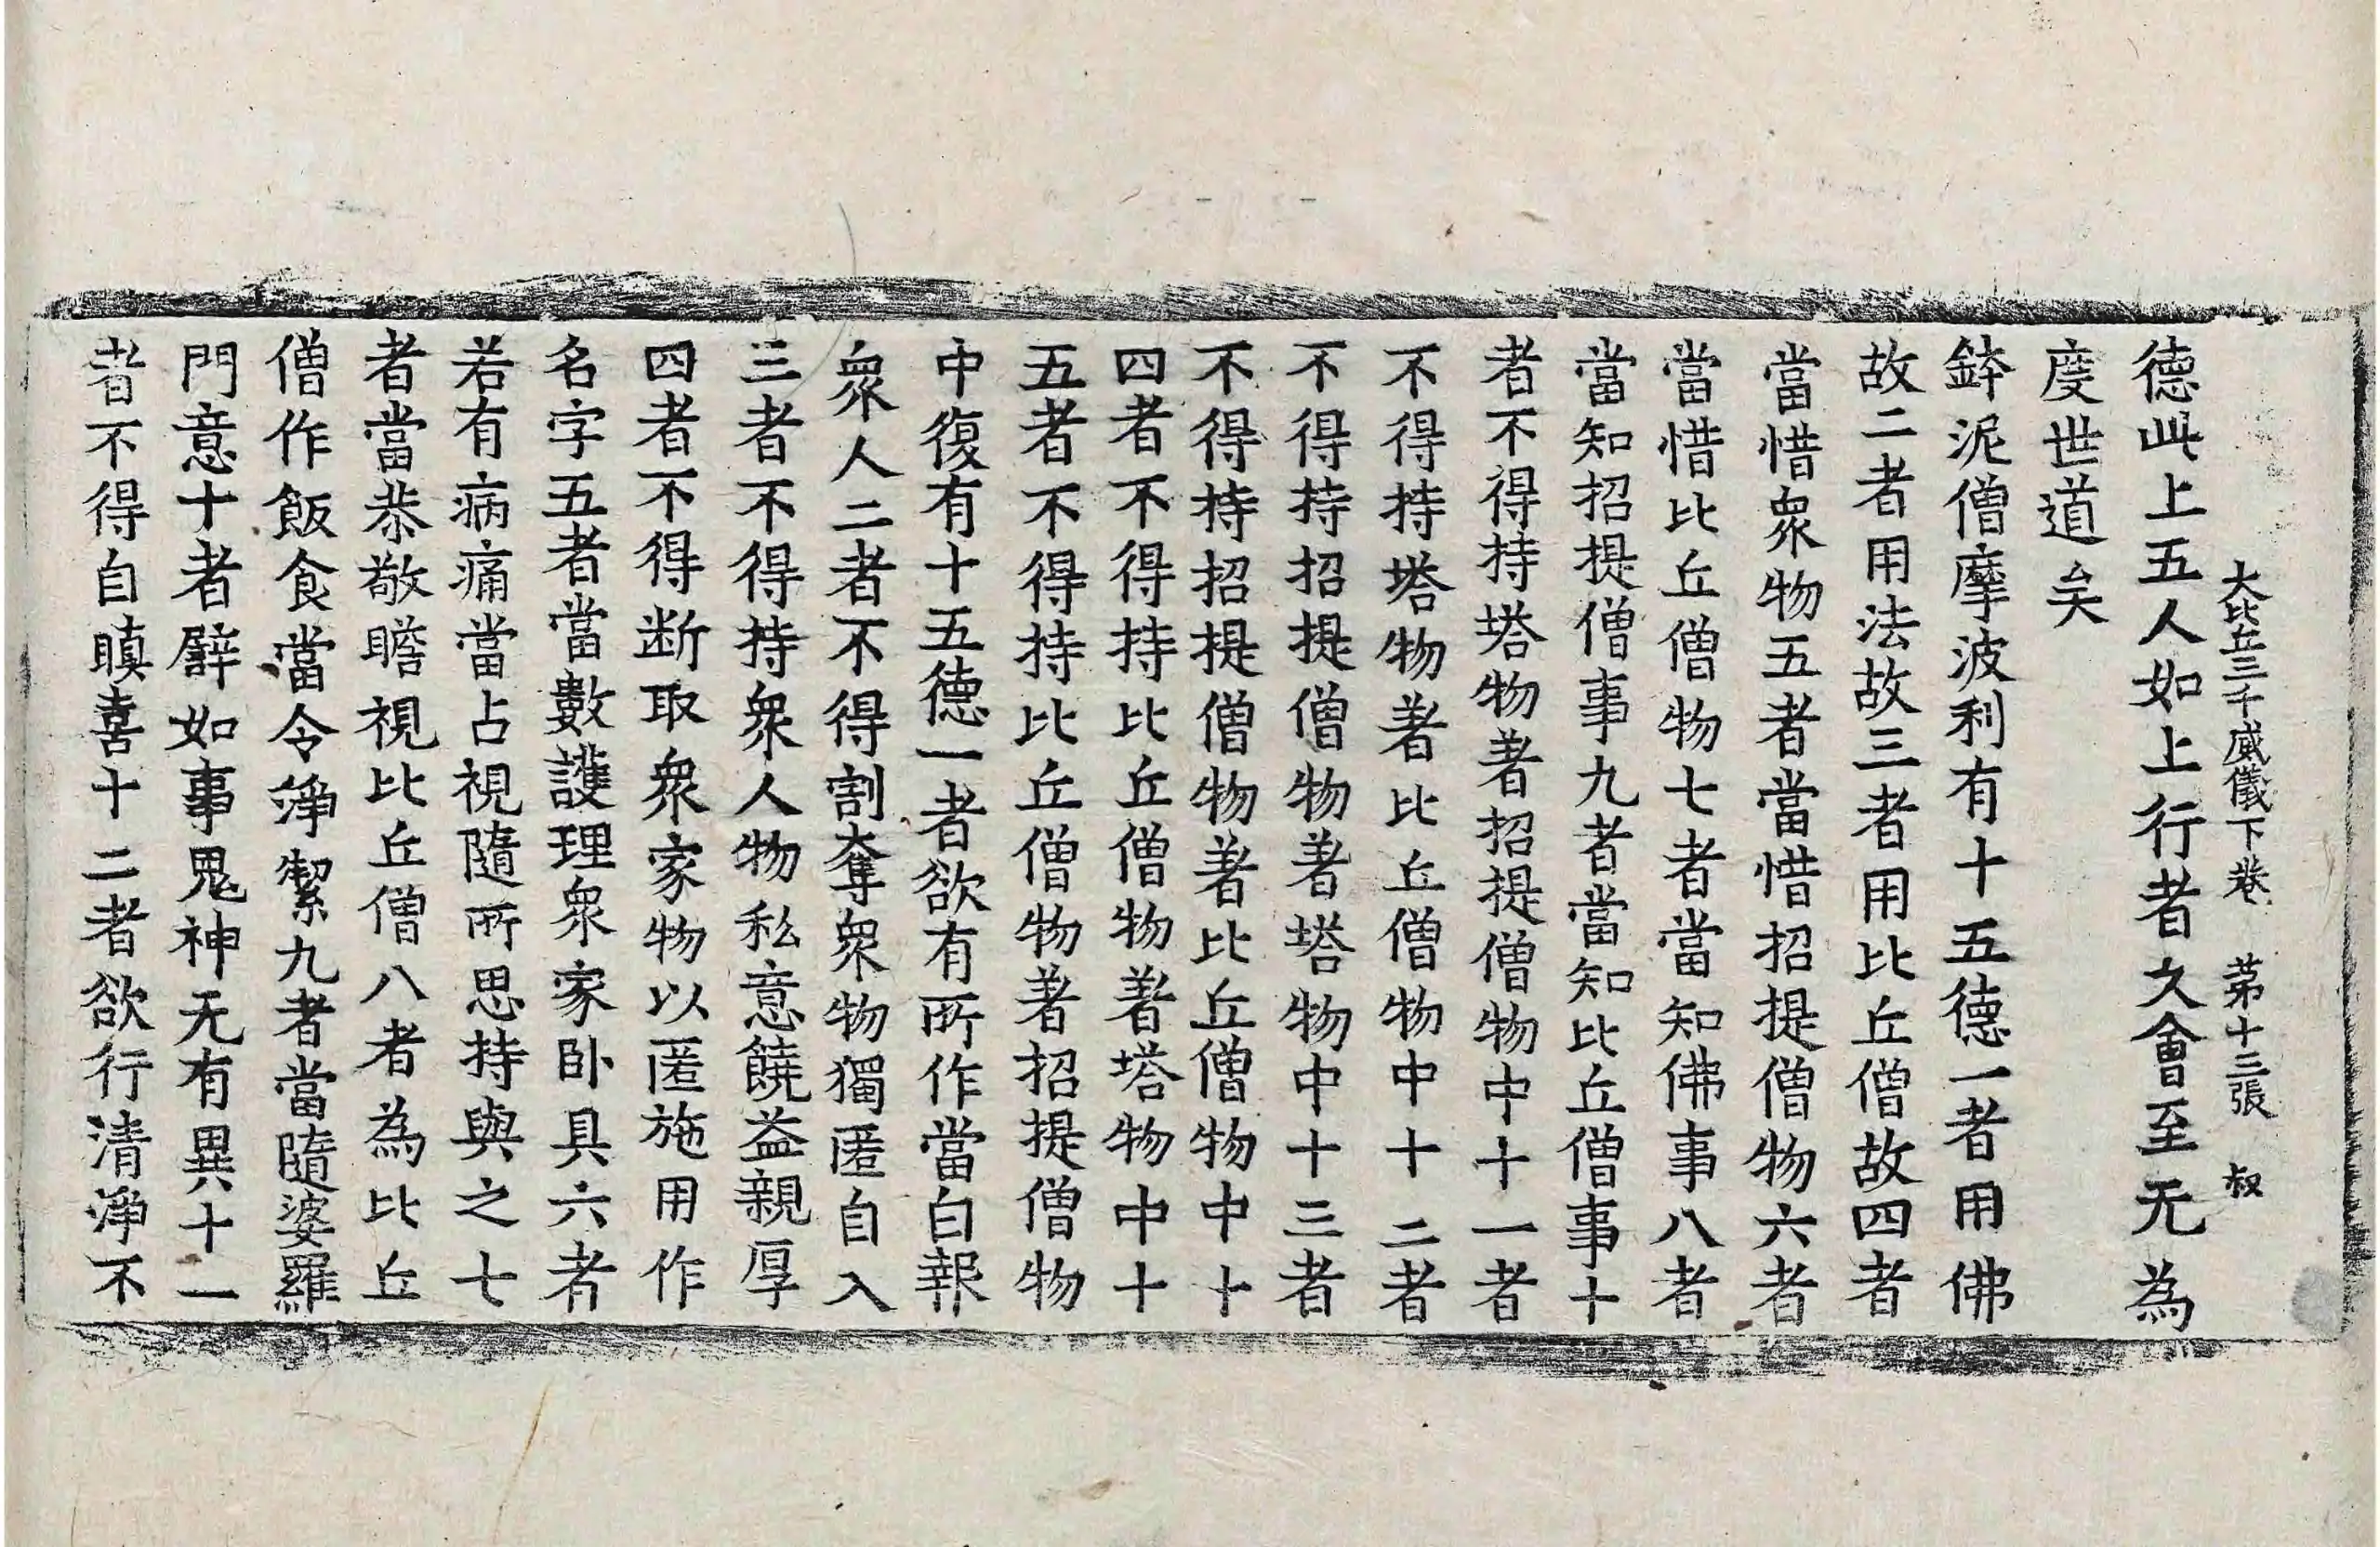 大比丘三千威儀下卷 苐十三張 叔
德此上五人如上行者久會至无為
度世道矣
鉢泥僧摩波利有十五德一者用佛
故二者用法故三者用比丘僧故四者
當惜衆物五者當惜招提僧物六者
當惜比丘僧物七者當知佛事八者
當知招提僧事九者當知比丘僧事十
者不得持塔物著招提僧物中十一者
不得持塔物著比丘僧物中十二者
不得持招提僧物著塔物中十三者
不得持招提僧物著比丘僧物中十
四者不得持比丘僧物著塔物中十
五者不得持比丘僧物著招提僧物
中復有十五德一者欲有所作當白報
衆人二者不得割奪衆物獨匿自入
三者不得持衆人物私意饒益親厚
四者不得断取衆家物以匿施用作
名字五者當數護理衆家卧具六者
若有病痛當占視隨所思持與之七
者當恭敬瞻視比丘僧八者為比丘
僧作飯食當令淨潔九者當隨婆羅
門意十者譬如事鬼神无有異十一
者不得自瞋喜十二者欲行清淨不